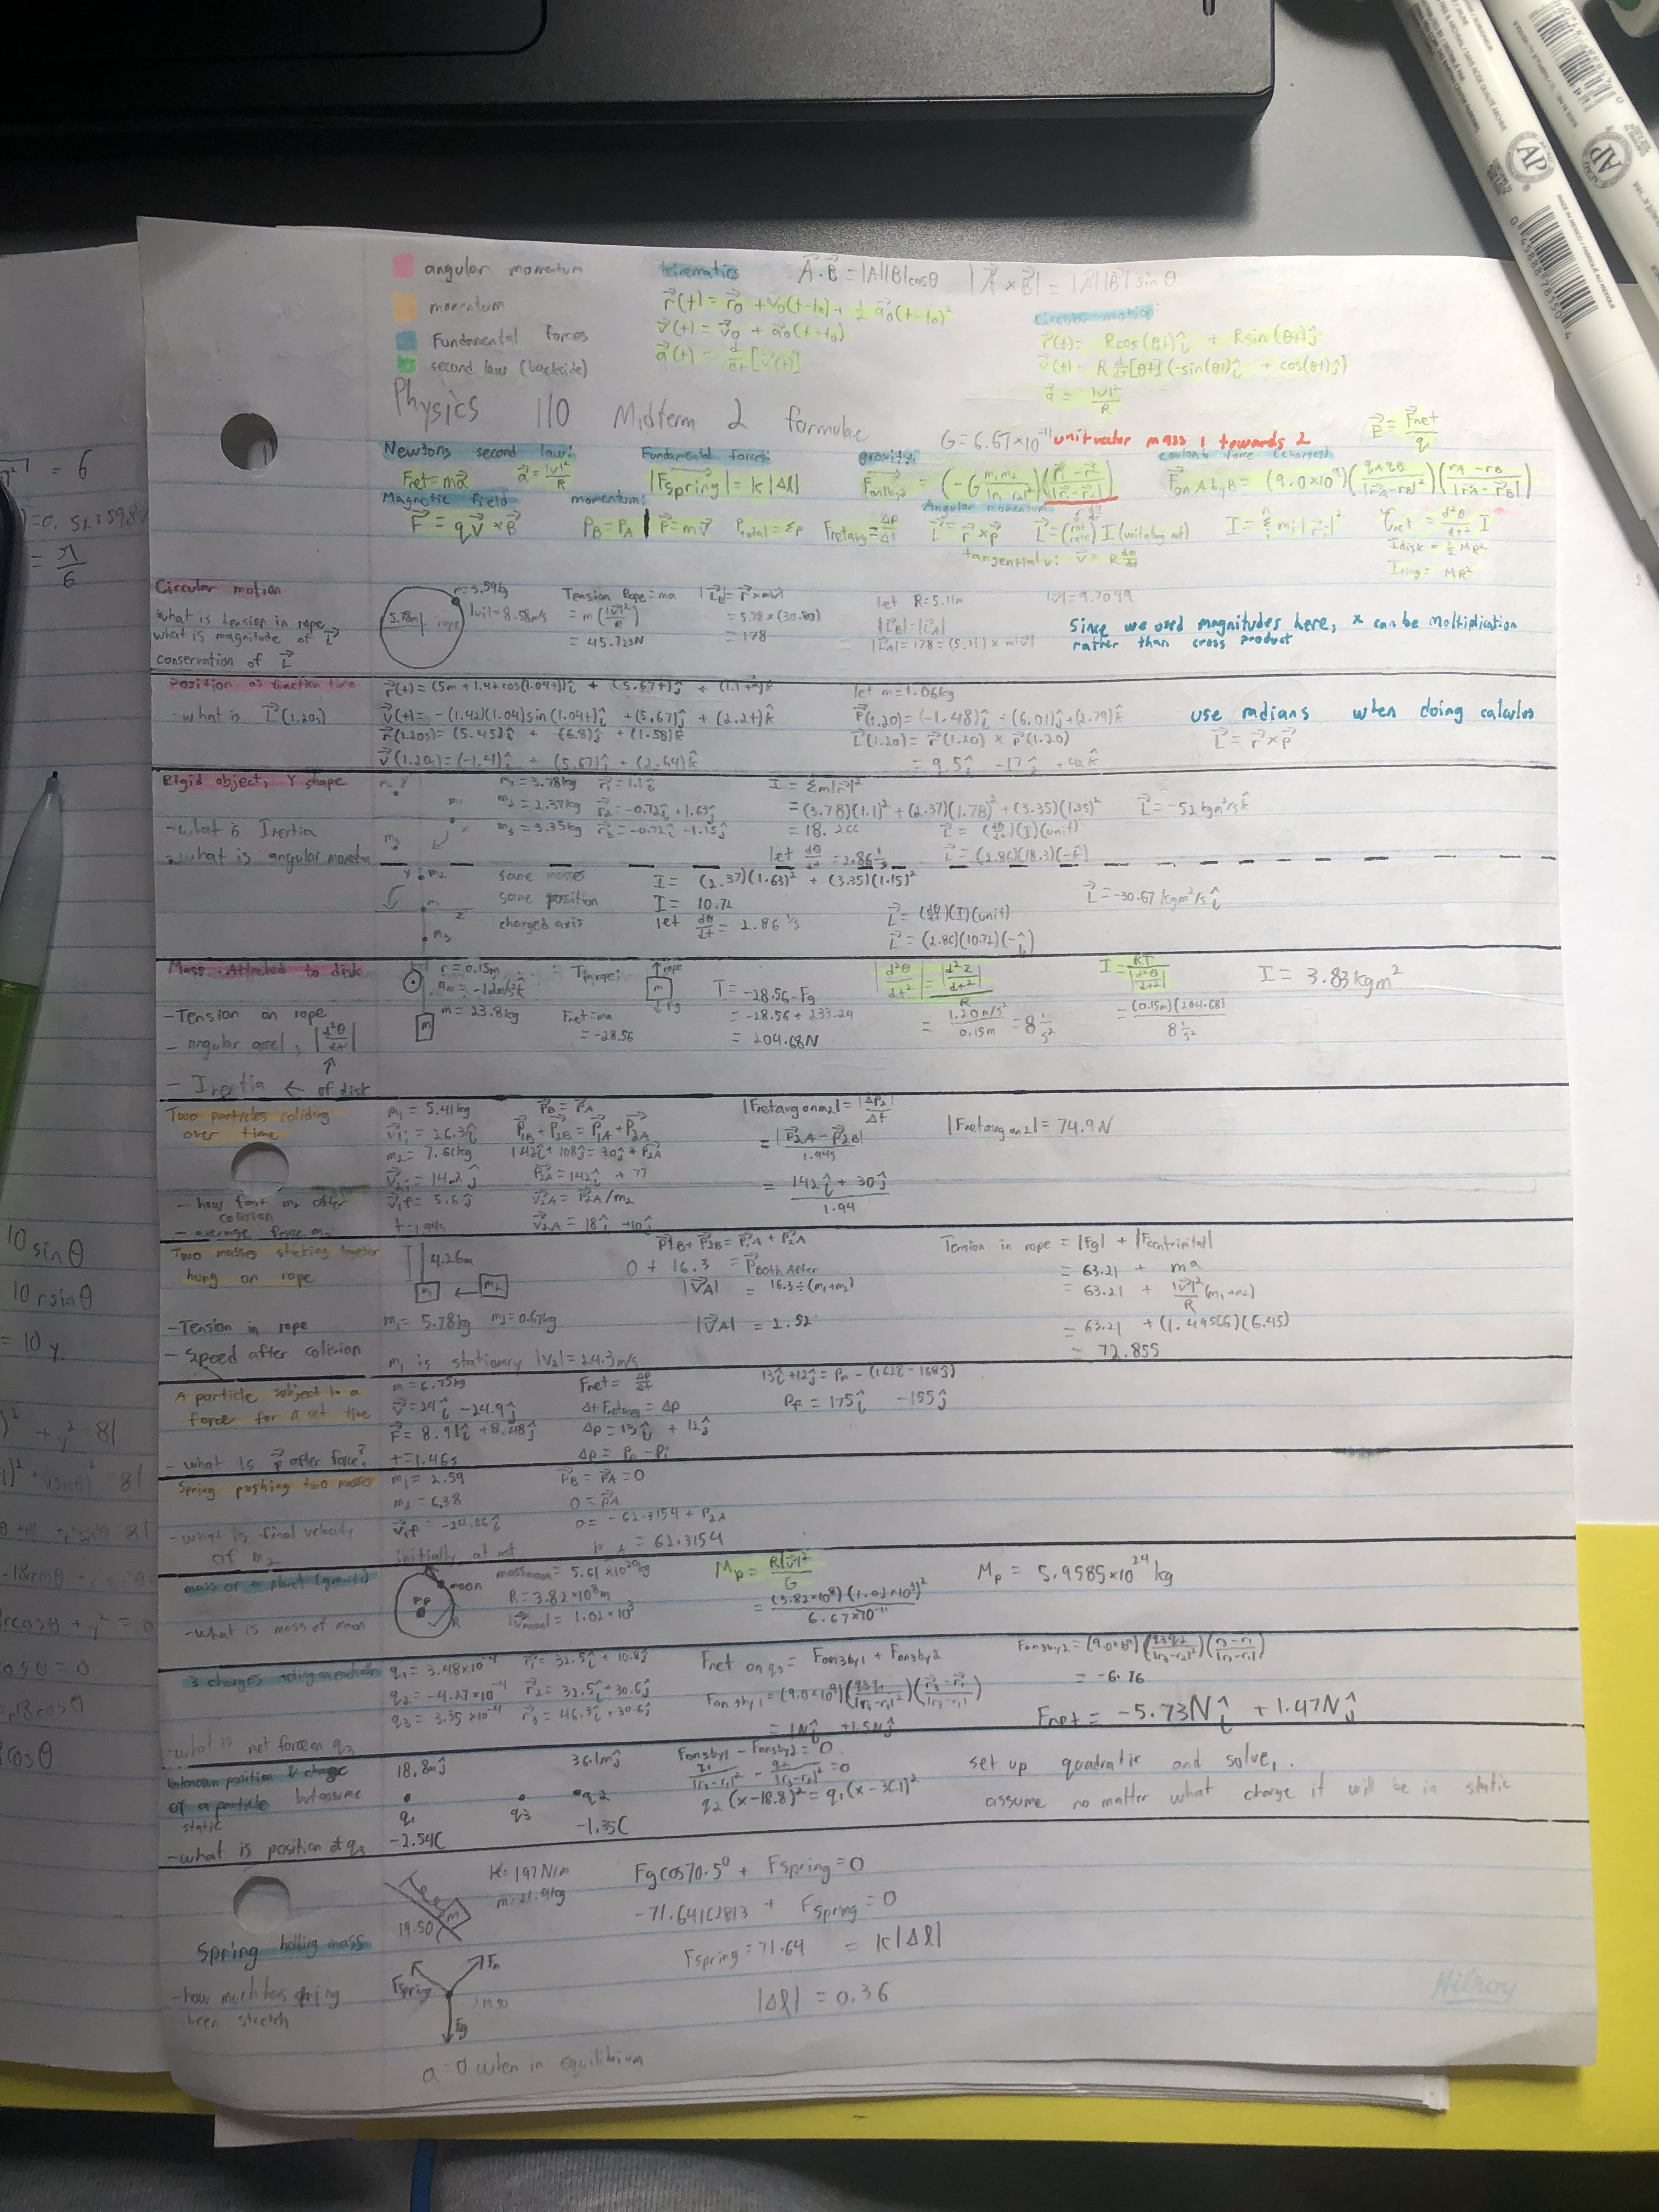 angular momentum
momentum
Fundamental forces
second law (backside)
kinematics
r⃗(t) = r⃗0 + v⃗0(t-t0) + 1/2 a⃗0(t-t0)²
v⃗(t) = v⃗0 + a⃗0(t-t0)
a⃗(t) = d/dt [v⃗(t)]
A⃗·B⃗ = |A||B|cosθ |A⃗ × B⃗| = |A⃗||B⃗| sinθ
Circular motion:
r⃗(t) = Rcos(θt)î + Rsin(θt)ĵ
v⃗(t) = R d/dt[θt] (-sin(θt)î + cos(θt)ĵ)
a⃗ = |v|²/R
Physics 110 Midterm 2 formulae
G = 6.67×10⁻¹¹ unit vector mass 1 towards 2
E⃗ = F⃗net/q1
Newtons second law:
Fnet = ma⃗ a⃗ = |v|²/R
Fundamental forces:
|Fspring| = k|Δl|
gravity:
Fon1by2 = (-G m1m2/|r1-r2|²)(r⃗1-r⃗2/|r⃗1-r⃗2|)
Coulomb force (charges)
F⃗on A by B = (9.0×10⁹)(qAqB/|r⃗A-r⃗B|²)(rA-rB/|r⃗A-r⃗B|)
Magnetic field
F⃗ = qv⃗ × B⃗
momentum:
PB = PA | P⃗ = mv⃗ Ptotal = ΣP Fnetavg = Δp/Δt
Angular momentum
L⃗ = r⃗ × p⃗
I = Σ mi|r⃗i|²
τnet = d²θ/dt² I
Idisk = 1/2 MR²
Iring = MR²
tangential v: v⃗ = R dθ/dt
Circular motion
what is tension in rope
what is magnitude of L⃗
conservation of L⃗
5.78m rope
m=3.59kg
|v1|=8.58m/s
Tension Rope = ma
= 45.723N
= 5.78 × (30.80)
= 178
let R=5.11m
|L⃗B| = |L⃗A|
|L⃗A| = 178 = (5.11) × m|v|
Since we used magnitudes here, x can be moltiplication
rather than cross product
Position as function time
- what is L⃗(1.20s)
r⃗(t) = (5m + 1.42cos(1.04t))î + (5.67t)ĵ + (1.1t²)k̂
v⃗(t) = -(1.42)(1.04)sin(1.04t)î + (5.67)ĵ + (2.2t)k̂
r⃗(1.20s) = (5.45)î + (6.8)ĵ + (1.58)k̂
v⃗(1.20s) = (-1.41)î + (5.67)ĵ + (2.64)k̂
let m=1.06kg
P⃗(1.20) = (-1.48)î + (6.01)ĵ + (2.79)k̂
L⃗(1.20) = r⃗(1.20) × p⃗(1.20)
= 9.5î -17ĵ + 42k̂
use radians when doing calculus
L⃗ = r⃗ × p⃗
Rigid object, Y shape
-what is Inertia
what is angular
m1 = 3.78kg r⃗1 = 1.1î
m2 = 2.37kg r⃗2 = -0.72î + 1.63ĵ
m3 = 3.35kg r⃗3 = -0.72î - 1.15ĵ
I = Σm|r⃗|²
= (3.78)(1.1)² + (2.37)(1.78)² + (3.35)(1.35)²
= 18.266
let dθ/dt = 2.86 1/s
L⃗ = (dθ/dt)(I)(unit)
L⃗ = (2.86)(18.3)(-k̂)
L⃗ = -52 kgm²/s k̂
same masses
same position
changed axis
I = (2.37)(1.63)² + (3.35)(1.15)²
I = 10.72
let dθ/dt = 2.86 1/s
L⃗ = (dθ/dt)(I)(unit)
L⃗ = (2.86)(10.72)(-î)
L⃗ = -30.67 kgm²/s î
Mass Attached to disk
-Tension on rope
- angular accel, |d²θ/dt²|
- Inertia ← of disk
r = 0.15m
m = 23.8kg
Fnet = ma
= -28.56
rope
m
Fg
T = -28.56 - Fg
= -28.56 + 233.24
= 204.68N
|d²θ/dt²| = |d²z/dt²|/R
= 1.20m/s²/0.15m = 8 1/s²
I = RT/|d²θ/dt²|
= (0.15m)(204.68)/8 1/s²
I = 3.83 kgm²
Two particles coliding
over time
- how fast m2 after
colision
- average force m2
m1 = 5.41kg
v⃗1i = 26.3î
m2 = 7.61kg
v⃗2i = 14.2ĵ
v⃗1f = 5.6ĵ
t=1.94s
P⃗B = P⃗A
P⃗1B + P⃗2B = P⃗1A + P⃗2A
142î + 108ĵ = 30ĵ + P⃗2A
P⃗2A = 142î + 77
v⃗2A = P⃗2A/m2
v⃗2A = 18î + 10ĵ
|Fnetavg on m2| = |ΔP2|/Δt
= |P⃗2A - P⃗2B|/1.94s
= 142î + 30ĵ/1.94
|Fnetavg on 2| = 74.9N
Two masses sticking together
hung on rope
-Tension in rope
- Speed after colision
4.26m
m2
m1 = 5.78kg m2=0.67kg
m1 is stationary |v2| = 24.3m/s
P⃗1B + P⃗2B = P⃗1A + P⃗2A
0 + 16.3 = P⃗both After
|v⃗A| = 16.3 ÷ (m1+m2)
|v⃗A| = 2.52
Tension in rope = |Fg| + |Fcentripital|
= 63.21 + ma
= 63.21 + |v⃗|²/R (m1+m2)
= 63.21 + (1.49566)(6.45)
= 72.855
A particle subject to a
force for a set time
- what is p⃗ after force?
m = 6.75kg
v⃗ = 24î - 24.9ĵ
F⃗ = 8.91î + 8.48ĵ
t=1.46s
Fnet = Δp/Δt
Δt Fnetavg = Δp
Δp = 13î + 12ĵ
Δp = Pf - Pi
13î + 12ĵ = Pf - (162î - 168ĵ)
Pf = 175î - 155ĵ
Spring pushing two masses
-what is final velocity
of m2
m1 = 2.59
m2 = 6.38
v⃗1f = -24.06î
initially at rest
P⃗B = P⃗A = 0
0 = P⃗A
0 = -62.3154 + P2A
= 62.3154
mass of a planet (gravity)
-what is mass of moon
mp
R
moon
massmoon = 5.61 ×10²⁰kg
R = 3.82×10⁸m
|v⃗moon| = 1.02×10³
Mp = R|v⃗|²/G
= (3.82×10⁸)(1.02×10³)²/6.67×10⁻¹¹
Mp = 5.9585×10²⁴kg
3 charges acting on eachother
-what is net force on q3
q1 = 3.48×10⁻⁴ r⃗1 = 32.5î + 10.8ĵ
q2 = -4.27×10⁻⁴ r⃗2 = 32.5î + 30.6ĵ
q3 = 3.35×10⁻⁴ r⃗3 = 46.3î + 30.6ĵ
Fnet on q3 = Fon3by1 + Fon3by2
Fon3by1 = (9.0×10⁹)(q3q1/|r3-r1|²)(r⃗3-r⃗1/|r3-r1|)
= 1Nî + 1.5Nĵ
= -6.76
Fnet = -5.73Nî + 1.47Nĵ
Unknown position & charge
of a particle but assume
static
-what is position of q3
18.8mĵ 36.1mĵ
q1 q3 q2
-2.54C -1.35C
Fon3by1 - Fon3by2 = 0
q1/|r3-r1|² - q2/|r3-r2|² = 0
q2(x-18.8)² = q1(x-36.1)²
set up quadratic and solve,
assume no matter what charge it will be in static
Spring holding mass
-how much has spring
been stretch
K = 197N/m
m = 21.9kg
19.50
m
Fspring
Fn
Fg
a = 0 when in equilibrium
Fgcos70.5° + Fspring = 0
-71.64162813 + Fspring = 0
Fspring = 71.64 = k|Δl|
|Δl| = 0.36
Hilroy
= 6
= π/6
10 sinθ
10 rsinθ
= 10y
AP